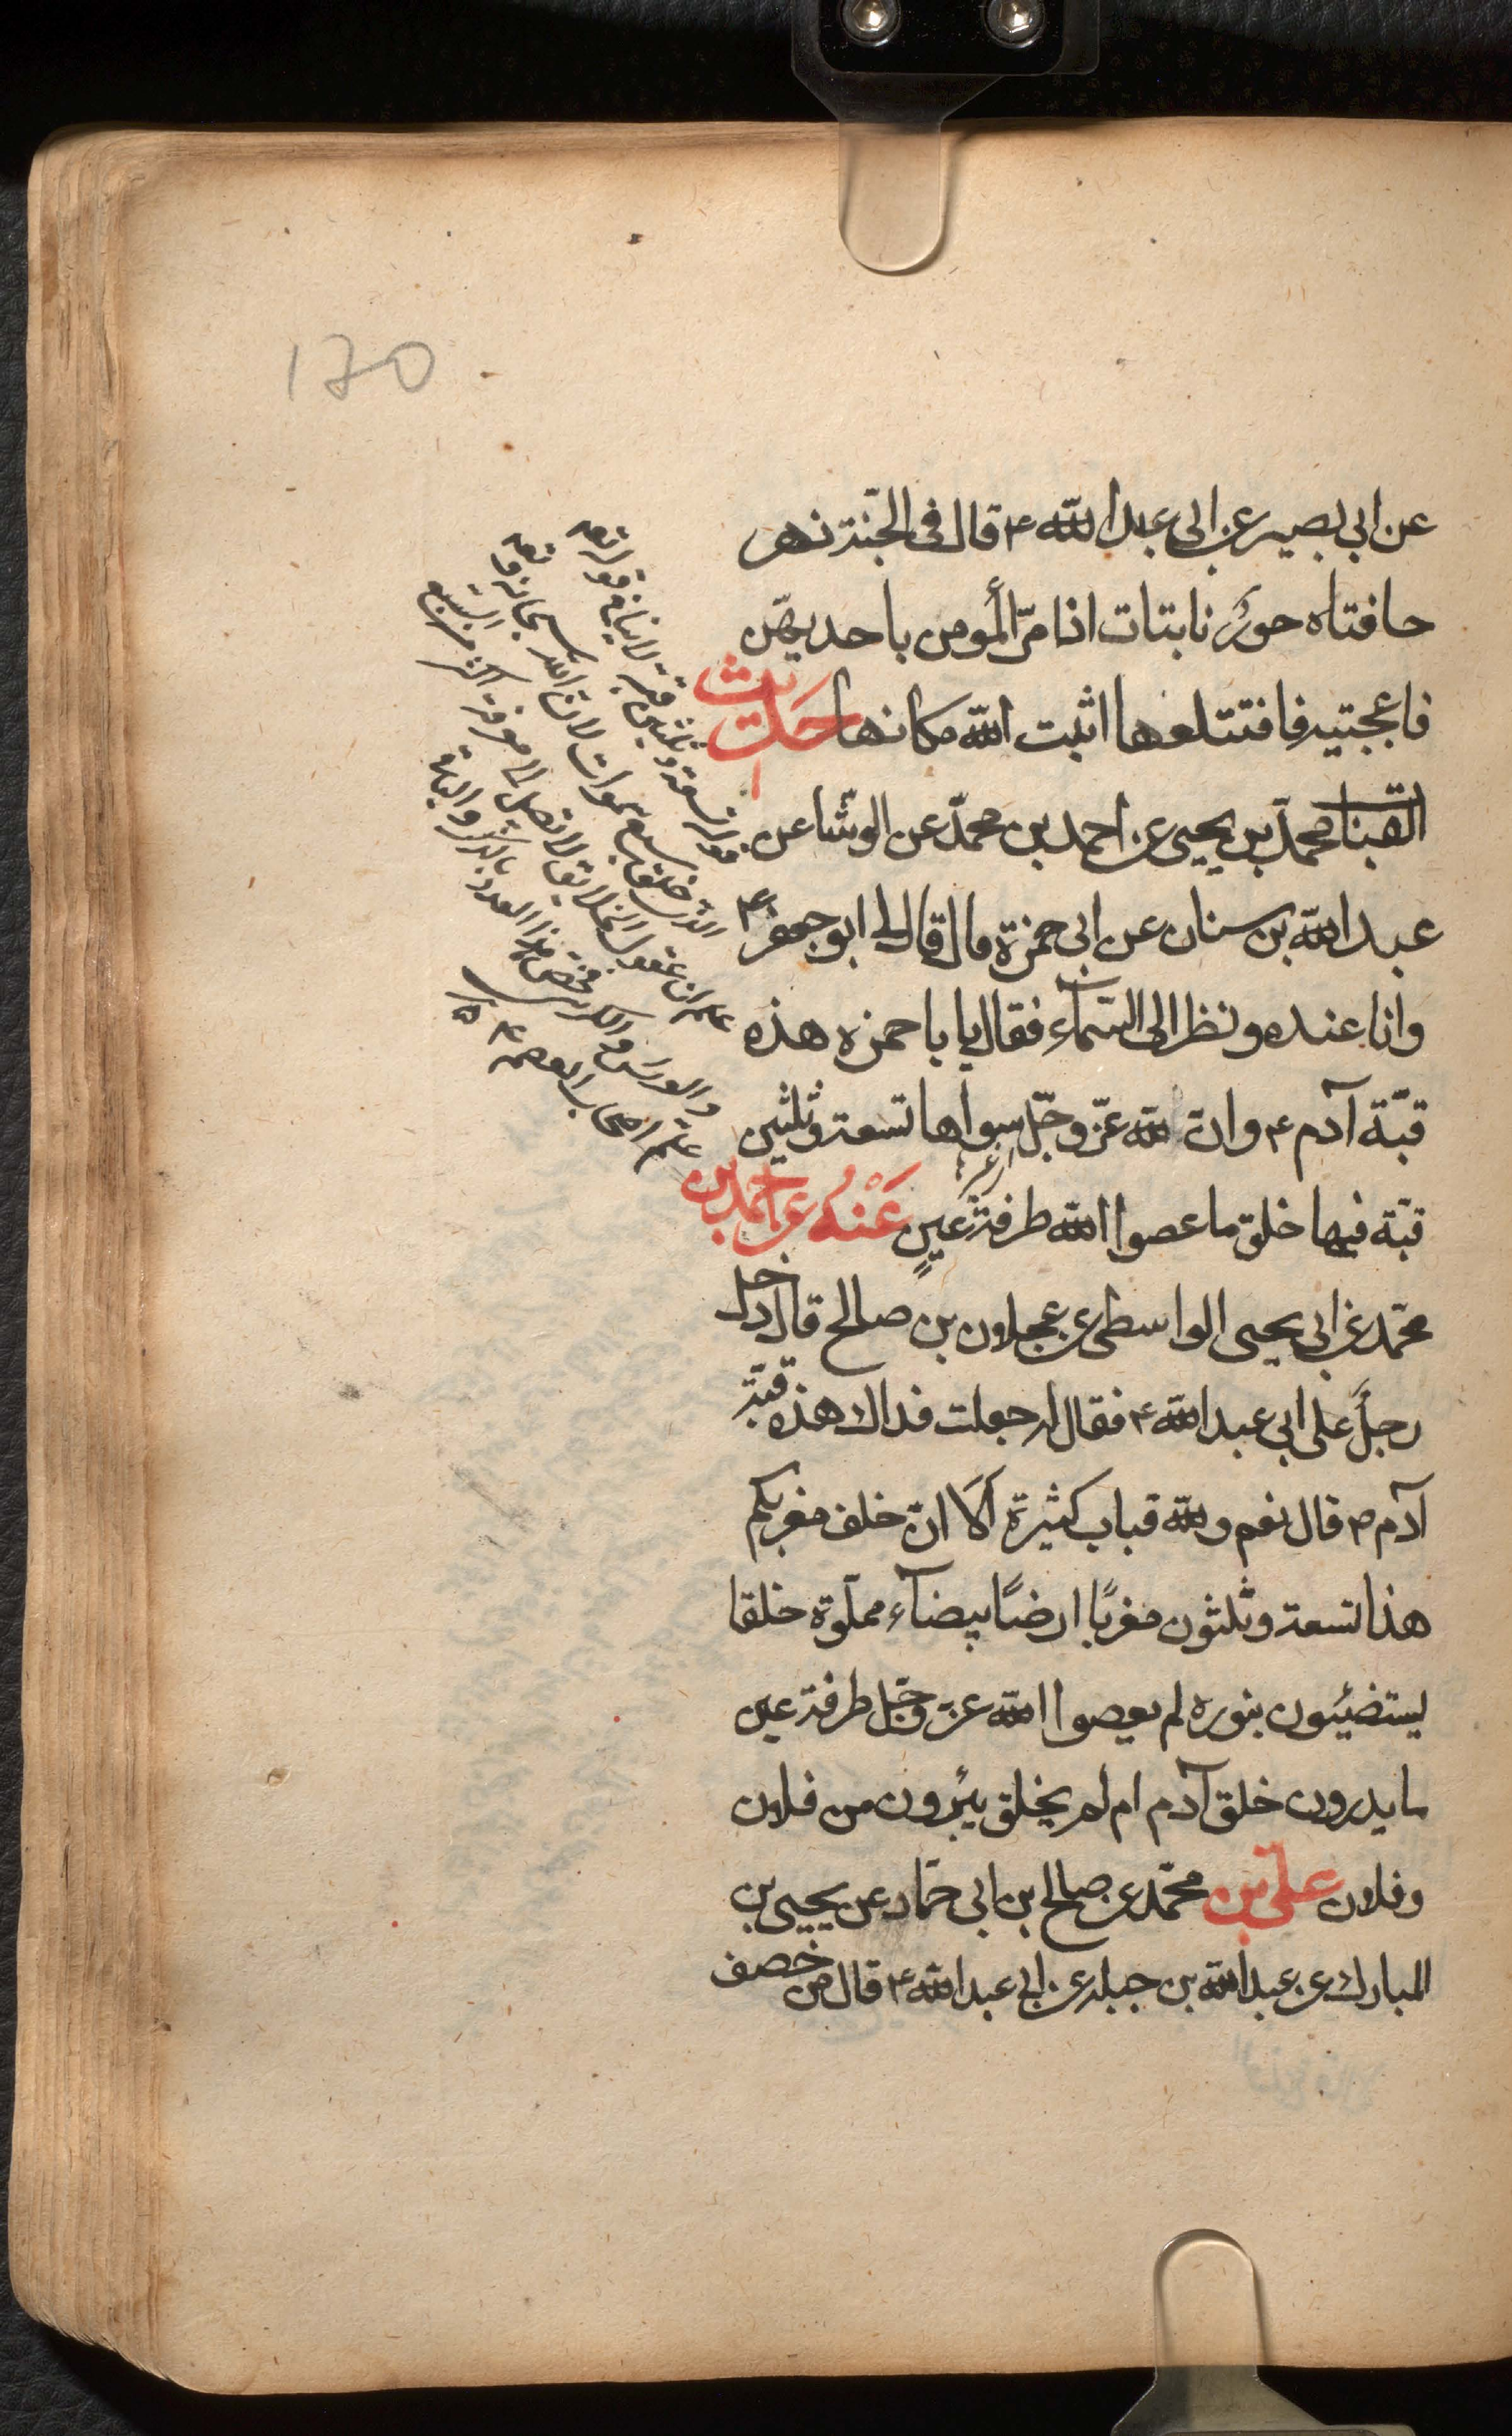 170
عن ابى بصير عن ابى عبد الله ع قال فى الجنّة نهر
حافتاه حورٌ نابتات اذا مرّ المؤمن باحديهنّ
فاعجبته فاقتلعها اثبت الله مكانها حديث
القباب محمّد بن يحيى عن احمد بن محمّد عن الوشّا عن
عبد الله بن سنان عن ابى حمزة قال قال لى ابو جعفر ع
وانا عنده ونظر الى السّمآء فقال يا با حمزه هذه
قبّة آدم ع وانّ لله عزّ وجلّ سواها تسعة وثلثين
قبّة فيها خلق ما عصوا الله طرفة عينٍ عَنْهُ عن احمد بن
محمّد عن ابى يحيى الواسطى عن عجلان بن صالح قال دخل
رجلٌ على ابى عبد الله ع فقال له جعلت فداك هذه قبّة
آدم ع قال نعم ولله قباب كثيرة اَلا انّ خلف مغربكم
هذا تسعة وثلثون مغربًا ارضًا بيضآء مملوّة خلقا
يستضيئون بنوره لم يعصوا الله عزّ وجلّ طرفة عين
ما يدرون خلق آدم ام لم يخلق يبرؤن من فلان
وفلان علىّ بن محمّد عن صالح بن ابى حمّاد عن يحيى بن
المبارك عن عبد الله بن جبله عن ابى عبد الله ع قال من خصف
قوله تسعة وثلثين قبة لا ينافى قوله تعه
الذى خلق سبع سموات لان الله سبحانه وتعه
علم ان عقول الخلايق لا تصل الى معرفة اكثر من السبع
والعرش والكرسى فخصّ هذا العدد بالذكر والبقية
علم اصحاب العصمة ع